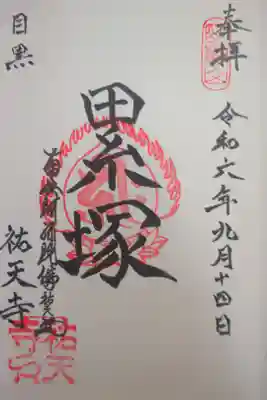 奉拝
令和六年九月十四日
累塚
目黒
祐天寺
祐天
寺印